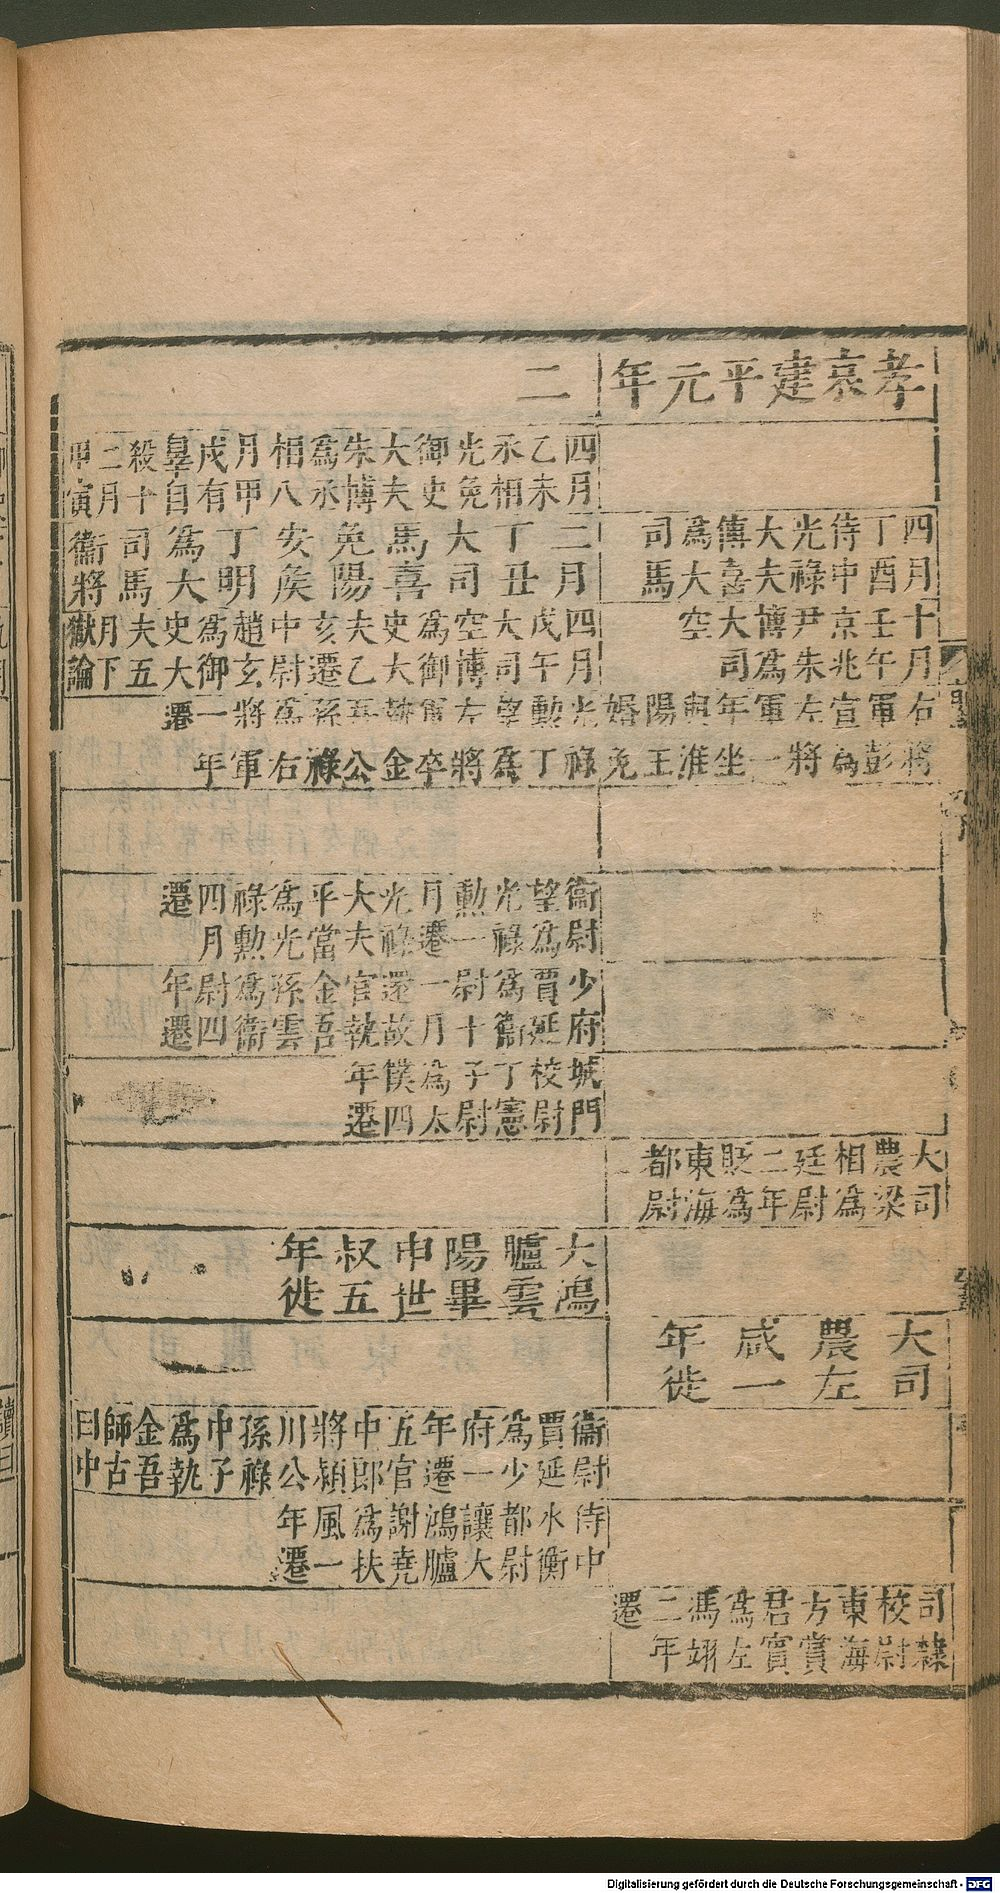 孝哀建平元年
四月丁酉侍中光祿大夫傅喜爲大司馬
十月壬午京兆尹朱博爲大司空
右將軍彭宣爲左將軍一年坐與淮陽王婚免
大司農梁相爲廷尉二年貶爲東海都尉
大司農左咸一年徙
司隸校尉東海方賞君賓爲左馮翊二年遷
二
四月乙未丞相光免御史大夫朱博爲丞相八月甲戌有辠自殺十二月甲寅
二月丁丑大司馬喜免陽安侯丁明爲大司馬衞將
四月戊午大司空博爲御史大夫乙亥遷中尉趙玄爲御史大夫五月下獄論
光祿勳丁望爲左將軍卒執金吾公孫祿爲右將軍一年遷
衞尉望爲光祿勳一月遷光祿大夫平當爲光祿勳四月遷
少府賈延爲衞尉十一月還故官執金吾孫雲爲衞尉四年遷
城門校尉丁憲子尉爲太僕四年遷
大鴻臚雲陽畢申世叔五年徙
衞尉賈延爲少府一年遷五官中郎將潁川公孫祿中子爲執金吾師古曰中
侍中水衡都尉讓大鴻臚謝堯爲扶風一年遷
Digitalisierung gefördert durch die Deutsche Forschungsgemeinschaft - DFG